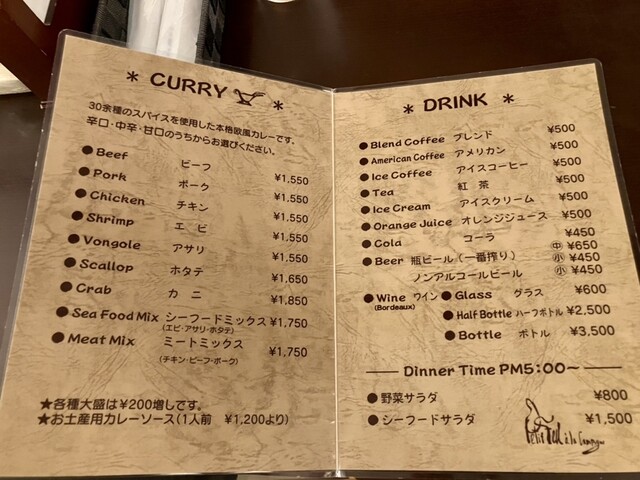 * CURRY *
30余種のスパイスを使用した本格欧風カレーです。
辛口・中辛・甘口のうちからお選びください。
●Beef ビーフ ¥1,550
●Pork ポーク ¥1,550
●Chicken チキン ¥1,550
●Shrimp エビ ¥1,550
●Vongole アサリ ¥1,550
●Scallop ホタテ ¥1,650
●Crab カニ ¥1,850
●Sea Food Mix シーフードミックス ¥1,750
(エビ・アサリ・ホタテ)
●Meat Mix ミートミックス ¥1,750
(チキン・ビーフ・ポーク)
★各種大盛は¥200増しです。
★お土産用カレーソース(1人前 ¥1,200より)
* DRINK *
●Blend Coffee ブレンド ¥500
●American Coffee アメリカン ¥500
●Ice Coffee アイスコーヒー ¥500
●Tea 紅茶 ¥500
●Ice Cream アイスクリーム ¥500
●Orange Juice オレンジジュース ¥500
●Cola コーラ ¥450
●Beer 瓶ビール(一番搾り) 中 ¥650
小 ¥450
ノンアルコールビール 小 ¥450
●Wine ワイン ●Glass グラス ¥600
(Bordeaux) ●Half Bottle ハーフボトル ¥2,500
●Bottle ボトル ¥3,500
Dinner Time PM5:00~
●野菜サラダ ¥800
●シーフードサラダ ¥1,500